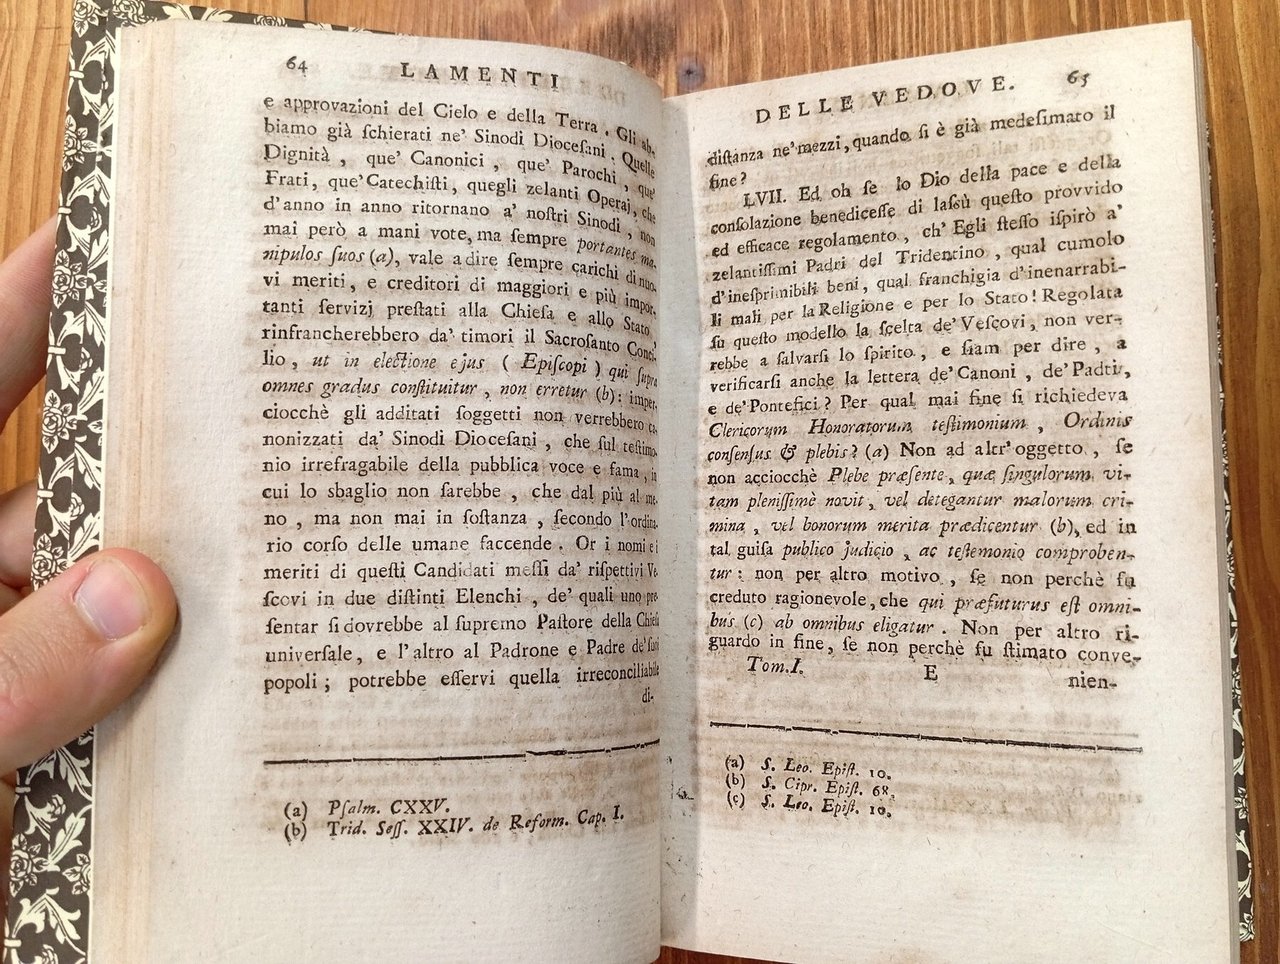 64 LAMENTI
e approvazioni del Cielo e della Terra. Gli ab-
biamo già ſchierati ne' Sinodi Dioceſani. Quelle
Dignità, que' Canonici, que' Parochi, que'
Frati, que' Catechiſti, quegli zelanti Operaj, che
d'anno in anno ritornano a' noſtri Sinodi, non
mai però a mani vote, ma ſempre portantes ma-
nipulos ſuos (a), vale a dire ſempre carichi di nuo-
vi meriti, e creditori di maggiori e più impor-
tanti ſervizj preſtati alla Chieſa e allo Stato
rinfrancherebbero da' timori il Sacroſanto Conci-
lio, ut in electione ejus (Epiſcopi) qui ſupra
omnes gradus conſtituitur, non erretur (b): imper-
ciocchè gli additati ſoggetti non verrebbero ca-
nonizzati da' Sinodi Dioceſani, che ſul teſtimo-
nio irrefragabile della pubblica voce e fama, in
cui lo sbaglio non ſarebbe, che dal più al me-
no, ma non mai in ſoſtanza, ſecondo l'ordina-
rio corſo delle umane faccende. Or i nomi e i
meriti di queſti Candidati meſſi da' riſpettivi Ve-
ſcovi in due diſtinti Elenchi, de' quali uno pre-
ſentar ſi dovrebbe al ſupremo Paſtore della Chieſa
univerſale, e l'altro al Padrone e Padre de' ſuoi
popoli; potrebbe eſſervi quella irreconciliabile
di-
(a) Pſalm. CXXV.
(b) Trid. Seſſ. XXIV. de Reform. Cap. I.
DELLE VEDOVE. 65
diſtanza ne' mezzi, quando ſi è già medeſimato il
fine?
LVII. Ed oh ſe lo Dio della pace e della
conſolazione benediceſſe di laſſù queſto provvido
ed efficace regolamento, ch' Egli ſteſſo iſpirò a'
zelantiſſimi Padri del Tridentino, qual cumolo
d'ineſprimibili beni, qual franchigia d'inenarrabi-
li mali per la Religione e per lo Stato! Regolata
ſu queſto modello la ſcelta de' Veſcovi, non ver-
rebbe a ſalvarſi lo ſpirito, e ſiam per dire, a
verificarſi anche la lettera de' Canoni, de' Padri,
e de' Pontefici? Per qual mai fine ſi richiedeva
Clericorum Honoratorum teſtimonium, Ordinis
conſenſus & plebis? (a) Non ad altr' oggetto, ſe
non acciocchè Plebe præſente, quæ ſingulorum vi-
tam pleniſſimè novit, vel detegantur malorum cri-
mina, vel bonorum merita prædicentur (b), ed in
tal guiſa publico judicio, ac teſtemonio comproben-
tur: non per altro motivo, ſe non perchè fu
creduto ragionevole, che qui præfuturus eſt omni-
bus (c) ab omnibus eligatur. Non per altro ri-
guardo in fine, ſe non perchè fu ſtimato conve-
Tom. I. E nien-
(a) S. Leo. Epiſt. 10.
(b) S. Cipr. Epiſt. 68.
(c) S. Leo. Epiſt. 10.